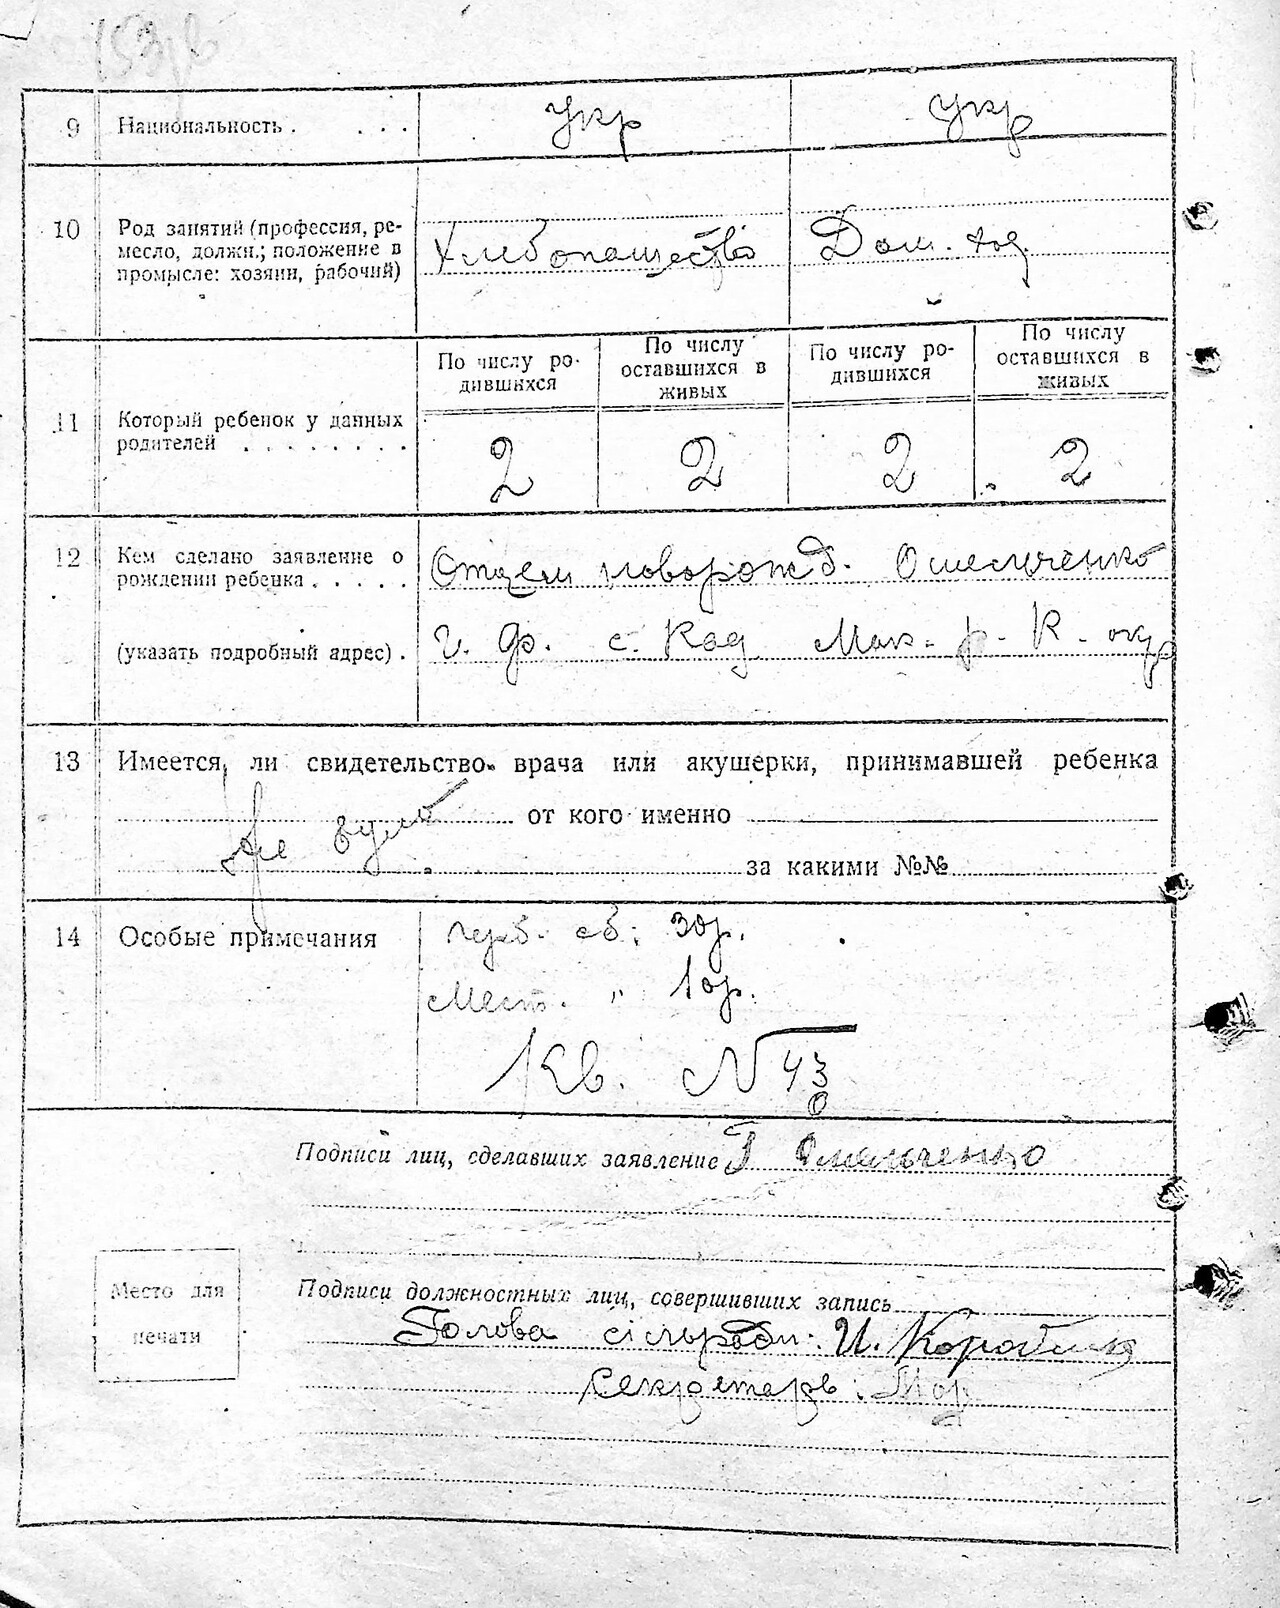 153
9 Национальность . . . . укр укр
10 Род занятий (профессия, ре-
месло, должн.; положение в
промысле: хозяин, рабочий)
Хлебопашество Дом. хоз.
По числу ро-
дившихся
По числу
оставшихся в
живых
По числу ро-
дившихся
По числу
оставшихся в
живых
11 Который ребенок у данных
родителей . . . . . . . .
2 2 2 2
12 Кем сделано заявление о
рождении ребенка . . . . .
Отцем новорожд. Омельченко
(указать подробный адрес) . Г. Ф. с. Мак. р. К. окр
13 Имеется ли свидетельство врача или акушерки, принимавшей ребенка
Не було от кого именно
за какими №№
14 Особые примечания
герб. сб: 30р.
Мест. " 10р.
Кв. N 43
Подписи лиц, сделавших заявление Г Омельченко
Место для
печати
Подписи должностных лиц, совершивших запись
Голова сільради: И.
Секретарь: